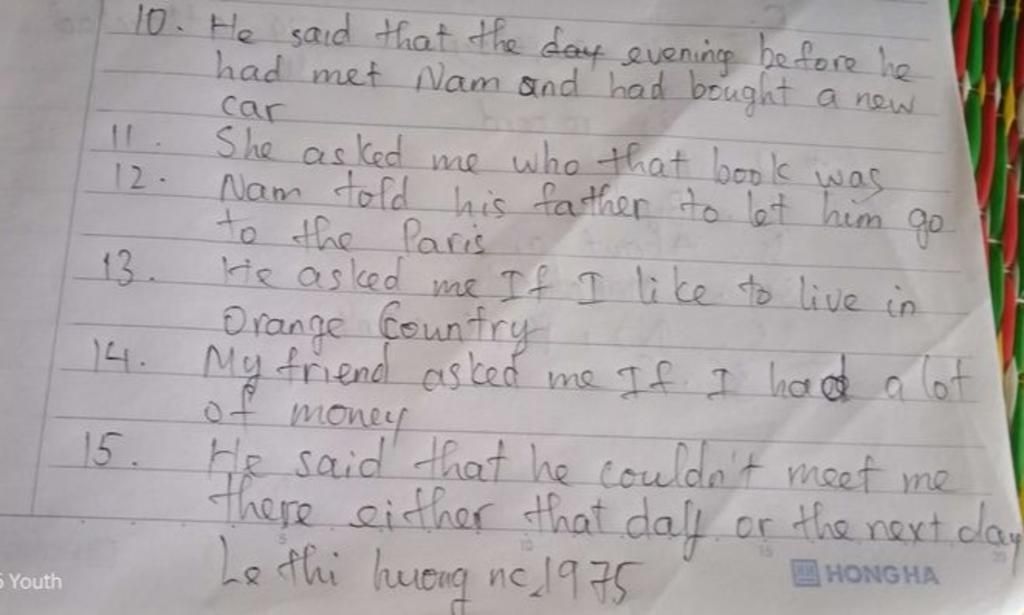 10. He said that the day evening before he
had met Nam and had bought a new
car
11. She asked me who that book was
12. Nam told his father to let him go
to the Paris
13. He asked me If I like to live in
Orange Country
14. My friend asked me If I had a lot
of money
15. He said that he couldn't meet me
there either that day or the next day
Le thi huong nc 1975
HONG HA
5 Youth